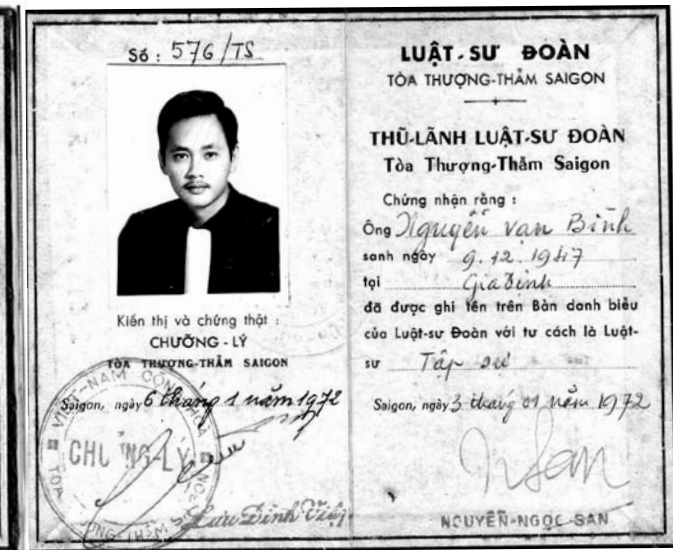 Số : 576/TS
Kiến thị và chứng thật :
CHƯỞNG - LÝ
TÒA THƯỢNG-THẨM SAIGON
Saigon, ngày 6 tháng 1 năm 1972
VIỆT-NAM CỘNG HÒA
CHƯỞNG-LÝ
LUẬT-SƯ ĐOÀN
TÒA THƯỢNG-THẨM SAIGON
THỦ-LÃNH LUẬT-SƯ ĐOÀN
Tòa Thượng-Thẩm Saigon
Chứng nhận rằng :
Ông Nguyễn Vạn Bình
sanh ngày 9.12.1947
tại Gia Định
đã được ghi tên trên Bản danh biểu
của Luật-sư Đoàn với tư cách là Luật-
sư Tập sự
Saigon, ngày 3 tháng 01 năm 1972
NGUYỄN-NGỌC-SAN